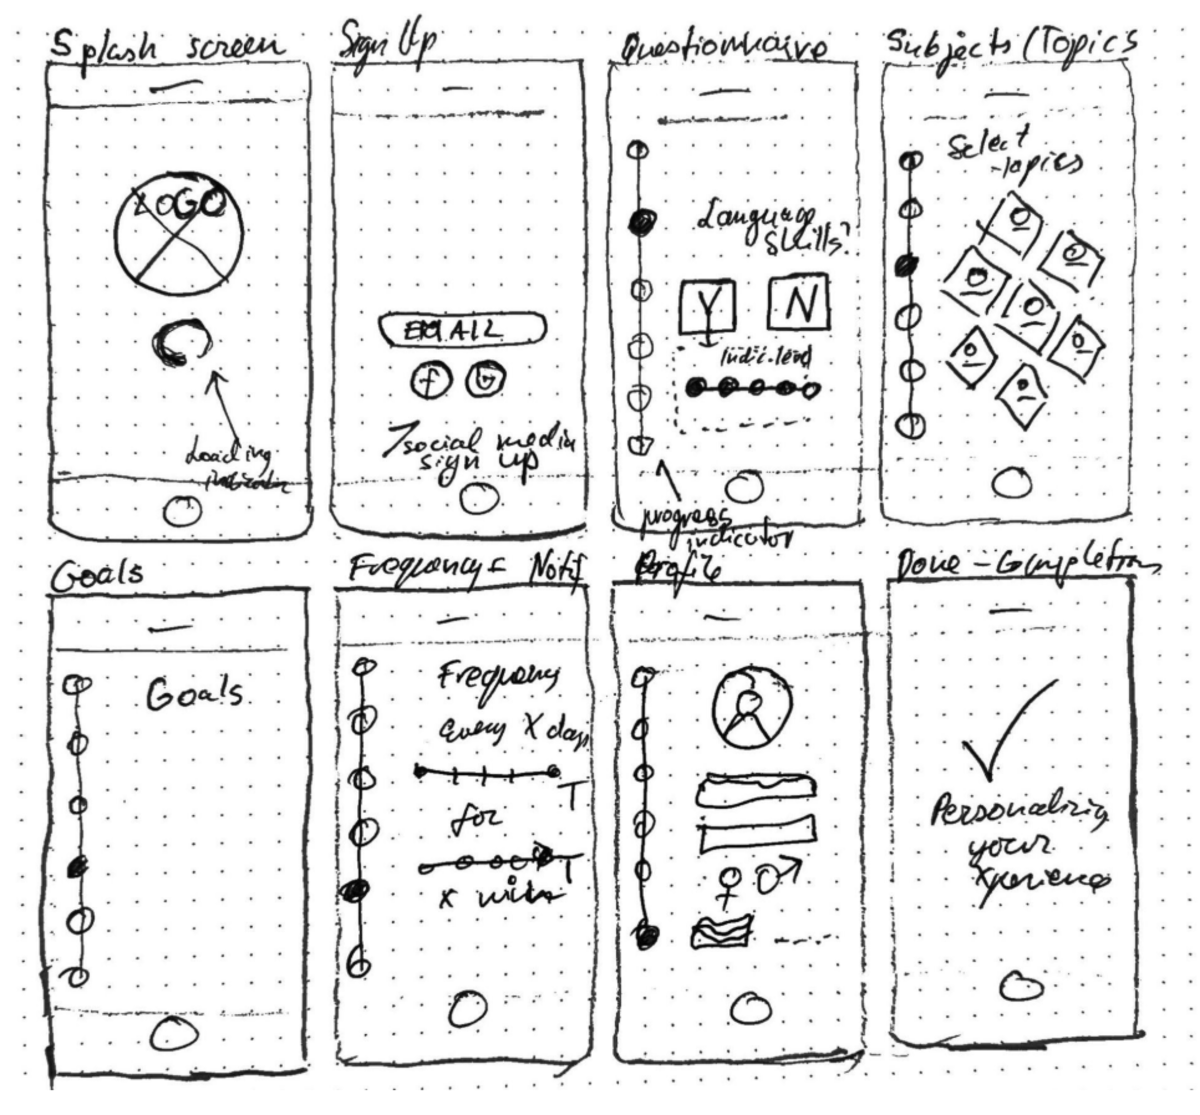 Splash screen
LOGO
Loading
indicator
Sign Up
EMAIL
f
social media
sign up
Questionnaire
Language
Skills?
Y N
indic. level
progress
indicator
Subjects/Topics
Select
topics
Goals
Goals
Frequency Notif
Frequency
every X days
T
for
T
X
Profile
Done - Completion
Personalizing
your
Xperience